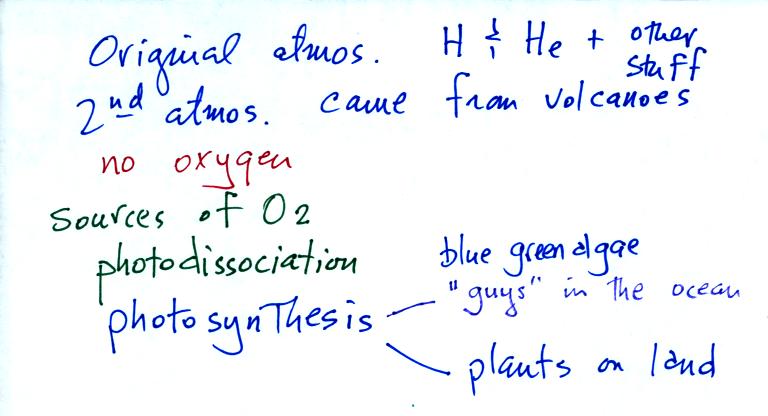 Original atmos. H & He + other stuff
2nd atmos. came from volcanoes
no oxygen
Sources of O2
photodissociation
photosynthesis
blue green algae
"guys" in the ocean
plants on land